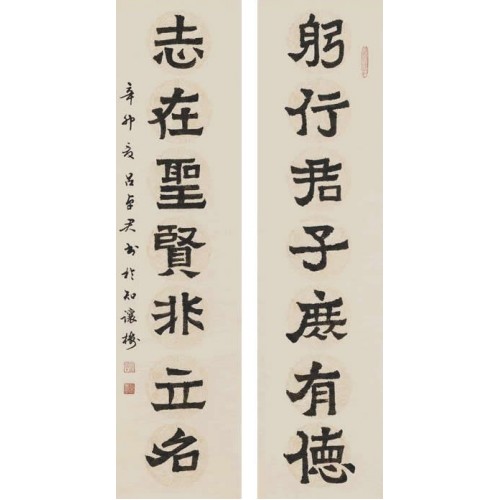 躬行君子庶有德
志在聖賢非立名
辛卯夏呂卓君书於知讓樓